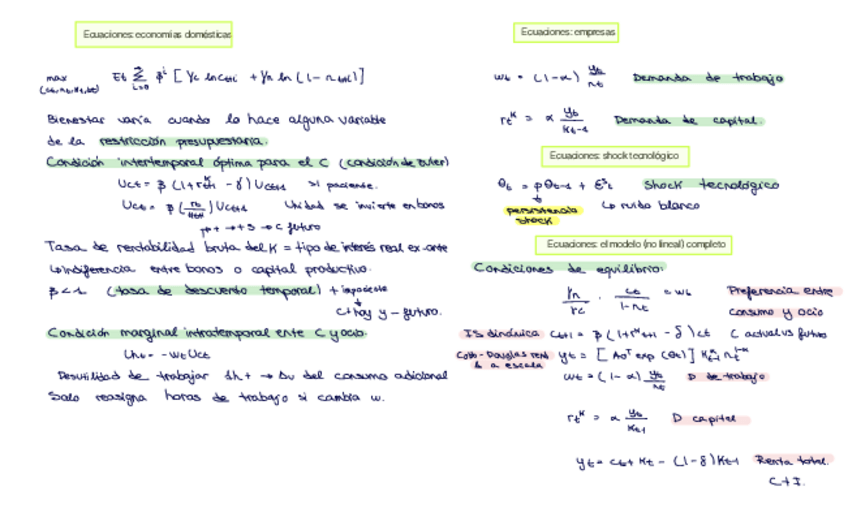 Ecuaciones: economías domésticas
max Et Σ β^i [γc ln ct+i + γn ln (1 - nt+i)]
(ct, nt, kt, bt) i=0
Bienestar varía cuando lo hace alguna variable
de la restricción presupuestaria.
Condición intertemporal óptima para el C (condición de Euler)
Uct = β (1 + r^K t+1 - δ) Uct+1 si paciente.
Uct = β ( ) Uct+1 Unidad se invierte en bonos
→ + S → C futuro
Tasa de rentabilidad bruta del K = tipo de interés real ex-ante
↳ indiferencia entre bonos o capital productivo.
β < 1 (tasa de descuento temporal) + impaciente
C + hoy y - futuro.
Condición marginal intratemporal ente C y ocio.
Unt = - wt Uct
Desutilidad de trabajar 1h + → Δu del consumo adicional
Solo reasigna horas de trabajo si cambia w.
Ecuaciones: empresas
wt = (1-α) yt/nt Demanda de trabajo
rt^K = α yt/Kt-1 Demanda de capital.
Ecuaciones: shock tecnológico
θt = ρθt-1 + εt Shock tecnológico
persistencia ↳ ruido blanco
shock
Ecuaciones: el modelo (no lineal) completo
Condiciones de equilibrio:
γn/γc · ct/1-nt = wt Preferencia entre
consumo y ocio
IS dinámica ct+1 = β (1 + r^K t+1 - δ) ct C actual vs futuro
Cobb-Douglas rend yt = [A0^T exp (θt)] K^α t-1 nt^1-α
a escala
wt = (1-α) yt/nt D de trabajo
rt^K = α yt/Kt-1 D capital
yt = ct + Kt - (1-δ) Kt-1 Renta total.
C + I.